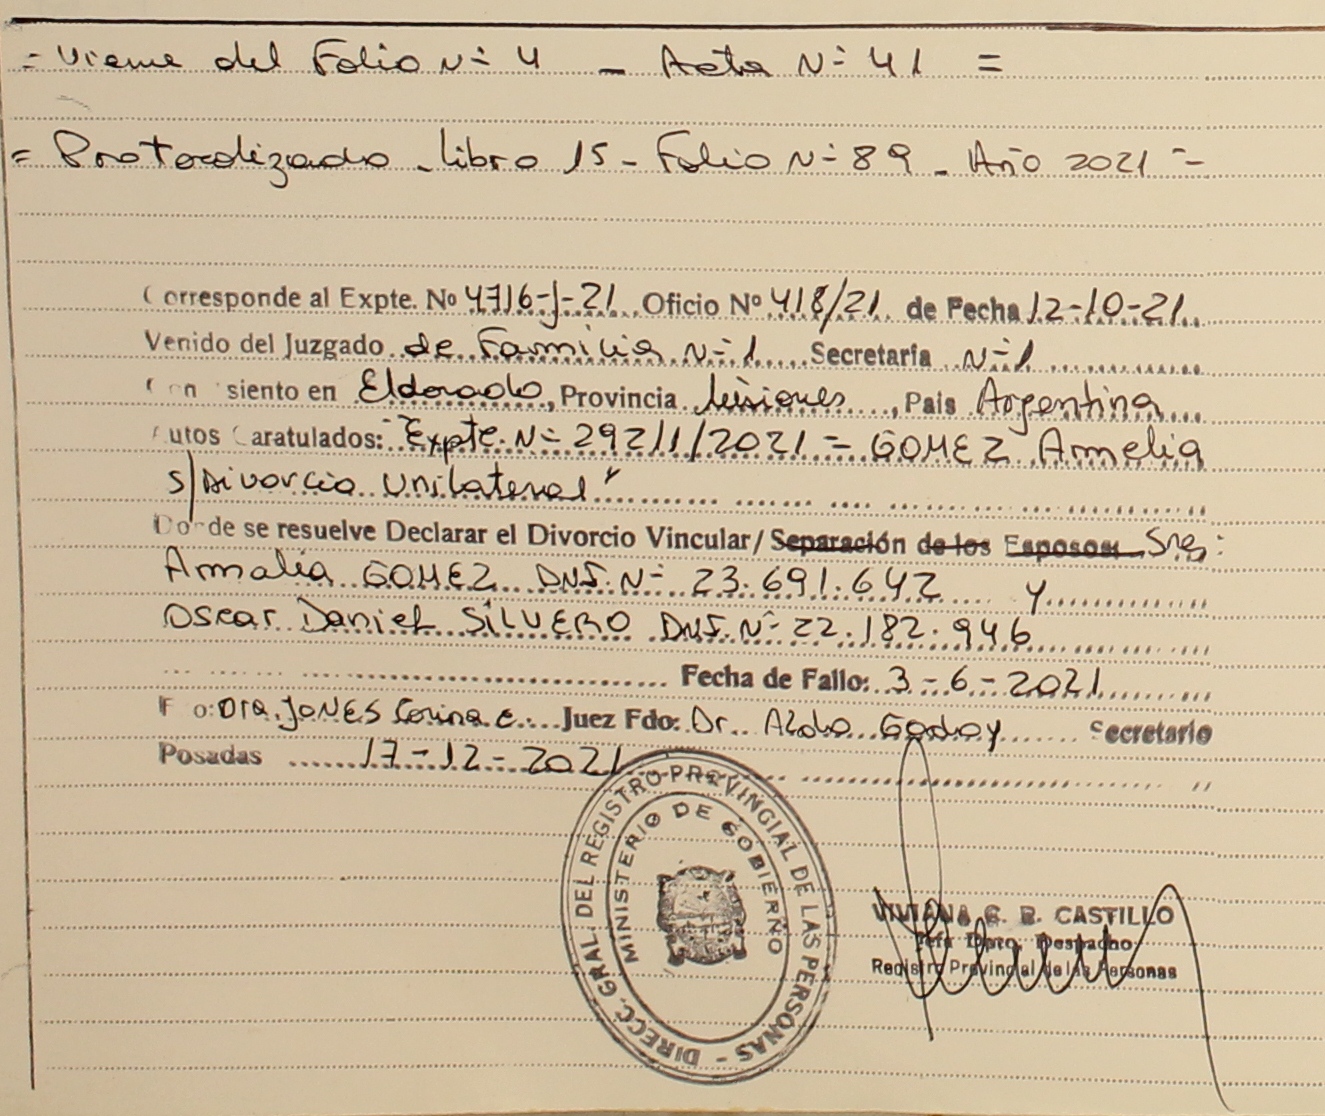 = Viene del Folio Nº 4 - Acta Nº 41 =
= Protocolizado - Libro 15 - Folio Nº 89 - Año 2021 =
Corresponde al Expte. Nº 4716-J-21 Oficio Nº 418/21 de Fecha 12-10-21
Venido del Juzgado de Familia Nº 1 Secretaría Nº 1
Con siento en Eldorado, Provincia Misiones, Pais Argentina
Autos Caratulados: "Expte. Nº 292/1/2021 = GOMEZ Amelia
s/Divorcio Unilateral"
Donde se resuelve Declarar el Divorcio Vincular/ Separación de los Esposos: Sres:
Amalia GOMEZ DNI. Nº 23.691.642 y
Oscar Daniel SILVERO DNI. Nº 22.182.946
Fecha de Fallo: 3-6-2021
F o: Dra. JONES Corina E. Juez Fdo: Dr. Aldo Godoy Secretario
Posadas 17-12-2021
DIRECC. GRAL. DEL REGISTRO PROVINCIAL DE LAS PERSONAS -
MINISTERIO DE GOBIERNO
VIVIANA G. B. CASTILLO
Jefa Dpto. Despacho
Registro Provincial de las Personas